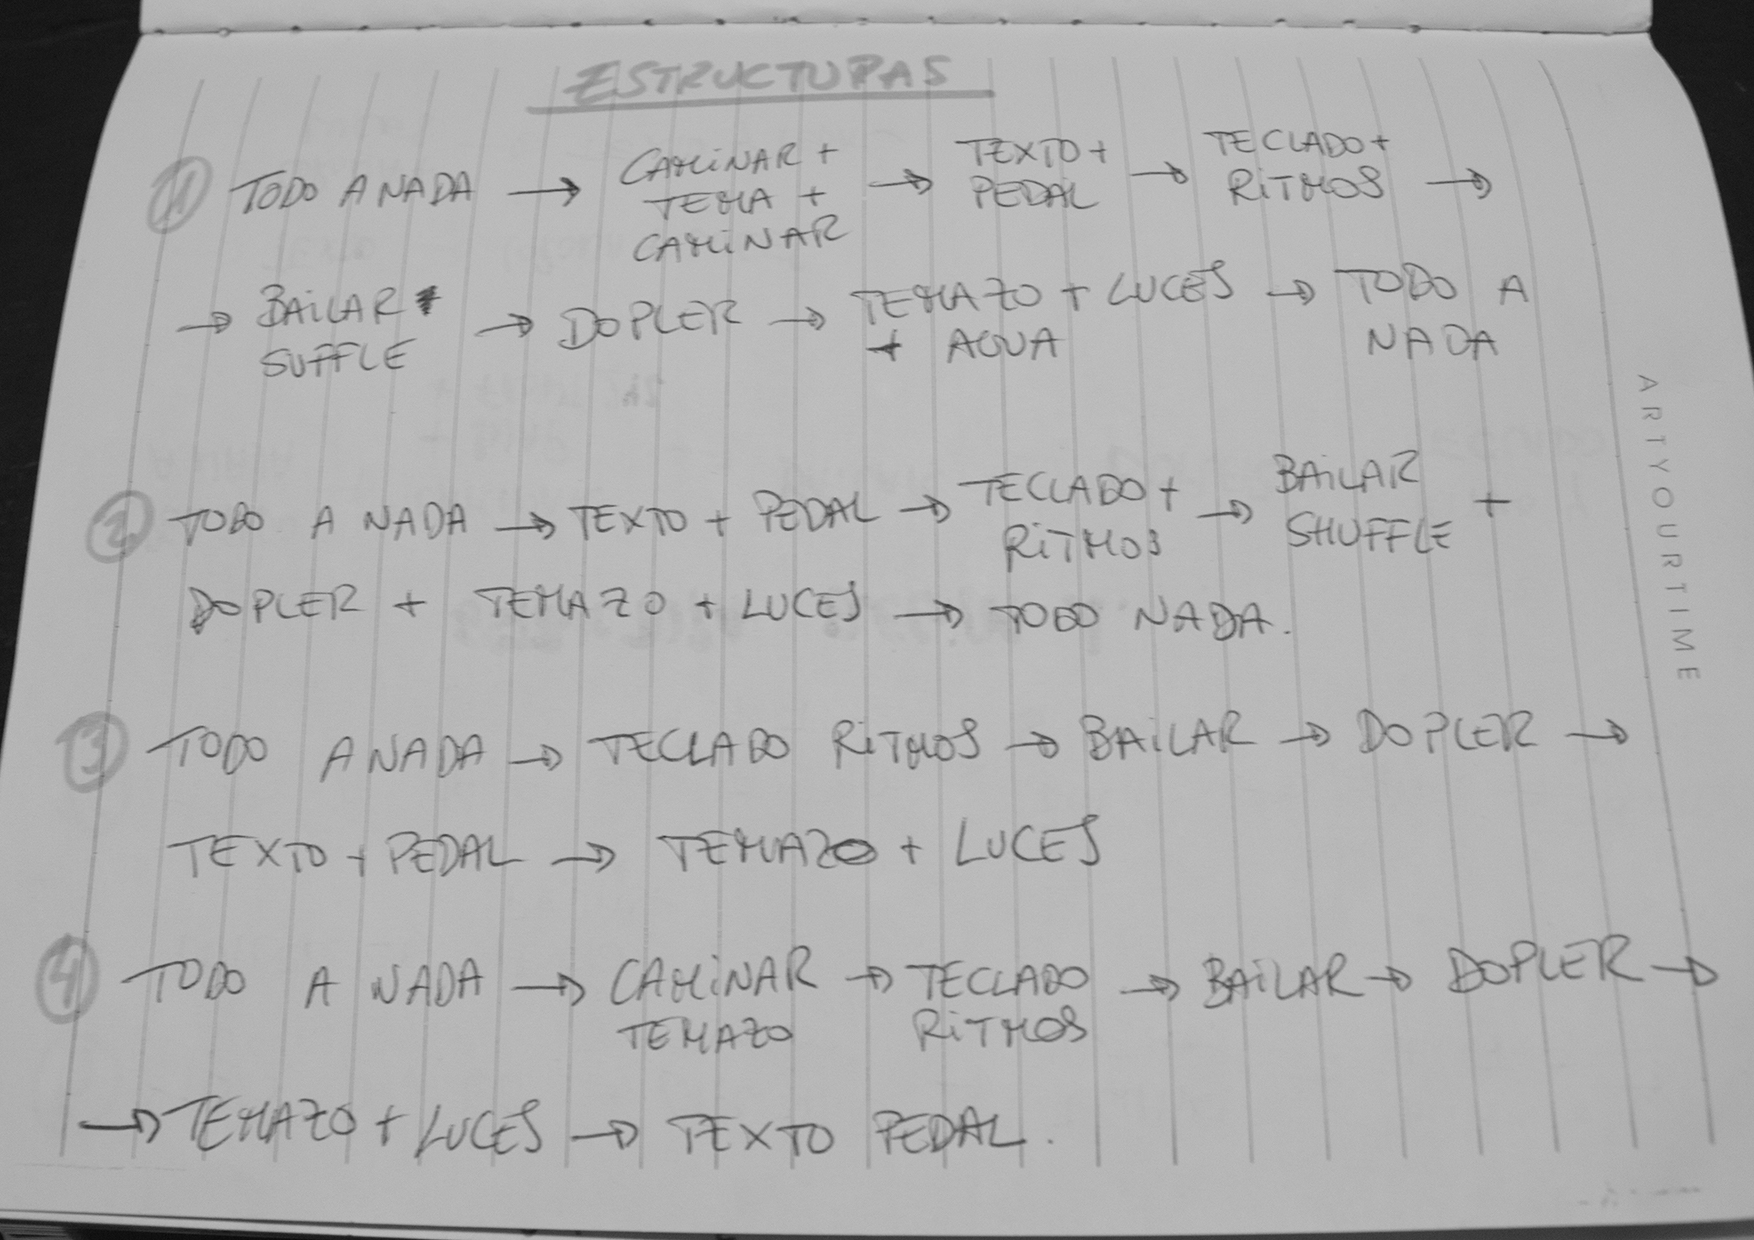 ESTRUCTURAS
① TODO A NADA → CAMINAR + → TEXTO + → TECLADO + →
TEMA + PEDAL RITMOS
CAMINAR
→ BAILAR → DOPLER → TEMAZO + LUCES → TODO A
SUFFLE + AGUA NADA
② TODO A NADA → TEXTO + PEDAL → TECLADO + → BAILAR +
RITMOS SHUFFLE
DOPLER + TEMAZO + LUCES → TODO NADA.
③ TODO A NADA → TECLADO RITMOS → BAILAR → DOPLER →
TEXTO + PEDAL → TEMAZO + LUCES
④ TODO A NADA → CAMINAR → TECLADO → BAILAR → DOPLER →
TEMAZO RITMOS
→ TEMAZO + LUCES → TEXTO PEDAL.
ARTYOURTIME